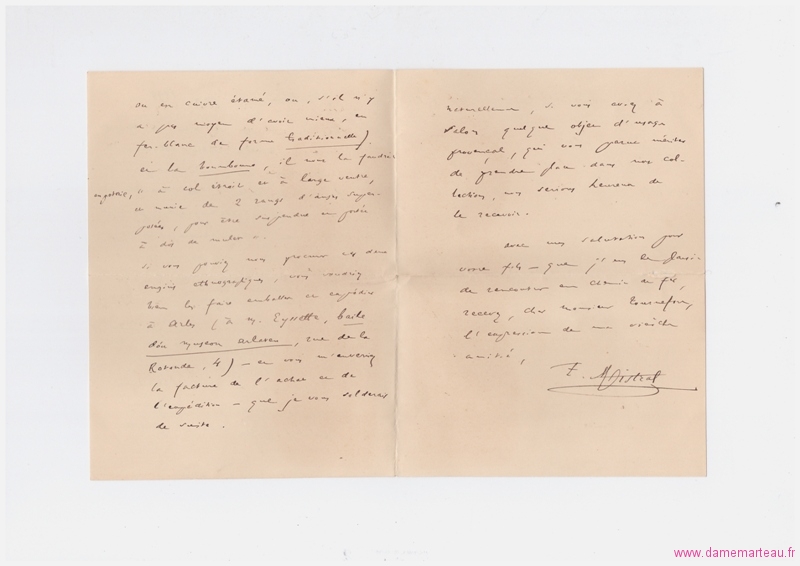 ou en cuivre étamé, ou, s'il n'y
a pas moyen d'avoir mieux, en
fer-blanc de forme traditionnelle).
et la bournbouno, il nous la faudrait
en poterie, " à col étroit et à large ventre,
et munie de 2 rangs d'anses super-
posées, pour être suspendue en portée
à dos de mulet ".
si vous pouviez nous procurer ces deux
engins ethnographiques, vous voudriez
bien les faire emballer et expédier
à Arles (à M. Eyssette, baile
dóu museon arlaten, rue de la
Rotonde, 4) — et vous m'enverrez
la facture de l'achat et de
l'expédition — que je vous solderai
de suite.
naturellement, si vous aviez à
Salon quelque objet d'usage
provençal, qui vous parût mériter
de prendre place dans nos col-
lections, nous serions heureux de
le recevoir.
avec mes salutations pour
votre fils — que j'eus le plaisir
de rencontrer en chemin de fer,
recevez, cher monsieur Tournefort,
l'expression de ma vieille
amitié,
F. Mistral
www.damemarteau.fr